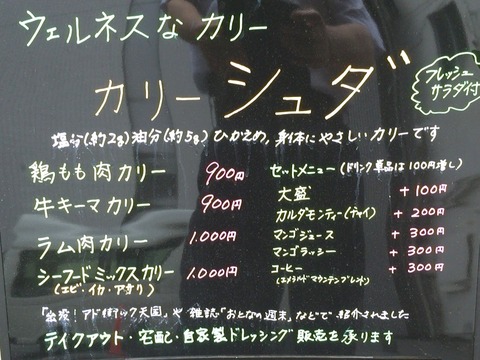 ウェルネスな カリー
カリー シュダ
フレッシュ
サラダ付
塩分(約2g)油分(約5g)ひかえめ、身体にやさしいカリーです
鶏もも肉カリー 900円
牛キーマカリー 900円
ラム肉カリー 1.000円
シーフードミックスカリー 1.000円
(エビ・イカ・アサリ)
セットメニュー(ドリンク単品は100円増し)
大盛 +100円
カルダモンティー(チャイ) +200円
マンゴジュース +300円
マンゴラッシー +300円
コーヒー +300円
(エメラルドマウンテンブレンド)
「出没!アド街ック天国」や 雑誌「おとなの週末」などで 紹介されました
テイクアウト・宅配・自家製ドレッシング 販売を承ります